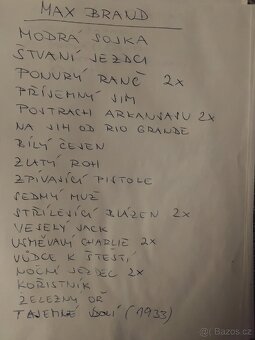 MAX BRAND
MODRÁ SOJKA
ŠTVANÍ JEZDCI
PONURÝ RANČ 2x
PŘÍJEMNÝ JIM
POSTRACH ARKANSASU 2x
NA JIH OD RIO GRANDE
BÍLÝ ČEJEN
ZLATÝ ROH
ZPÍVAJÍCÍ PISTOLE
SEDMÝ MUŽ
STŘÍLEJÍCÍ BLÁZEN 2x
VESELÝ JACK
USMĚVAVÝ CHARLIE 2x
VŮDCE K ŠTĚSTÍ
NOČNÍ JEZDEC 2x
KOŘISTNÍK
ŽELEZNÝ OŘ
TAJEMNÉ ÚDOLÍ (1933)
sbazar.cz